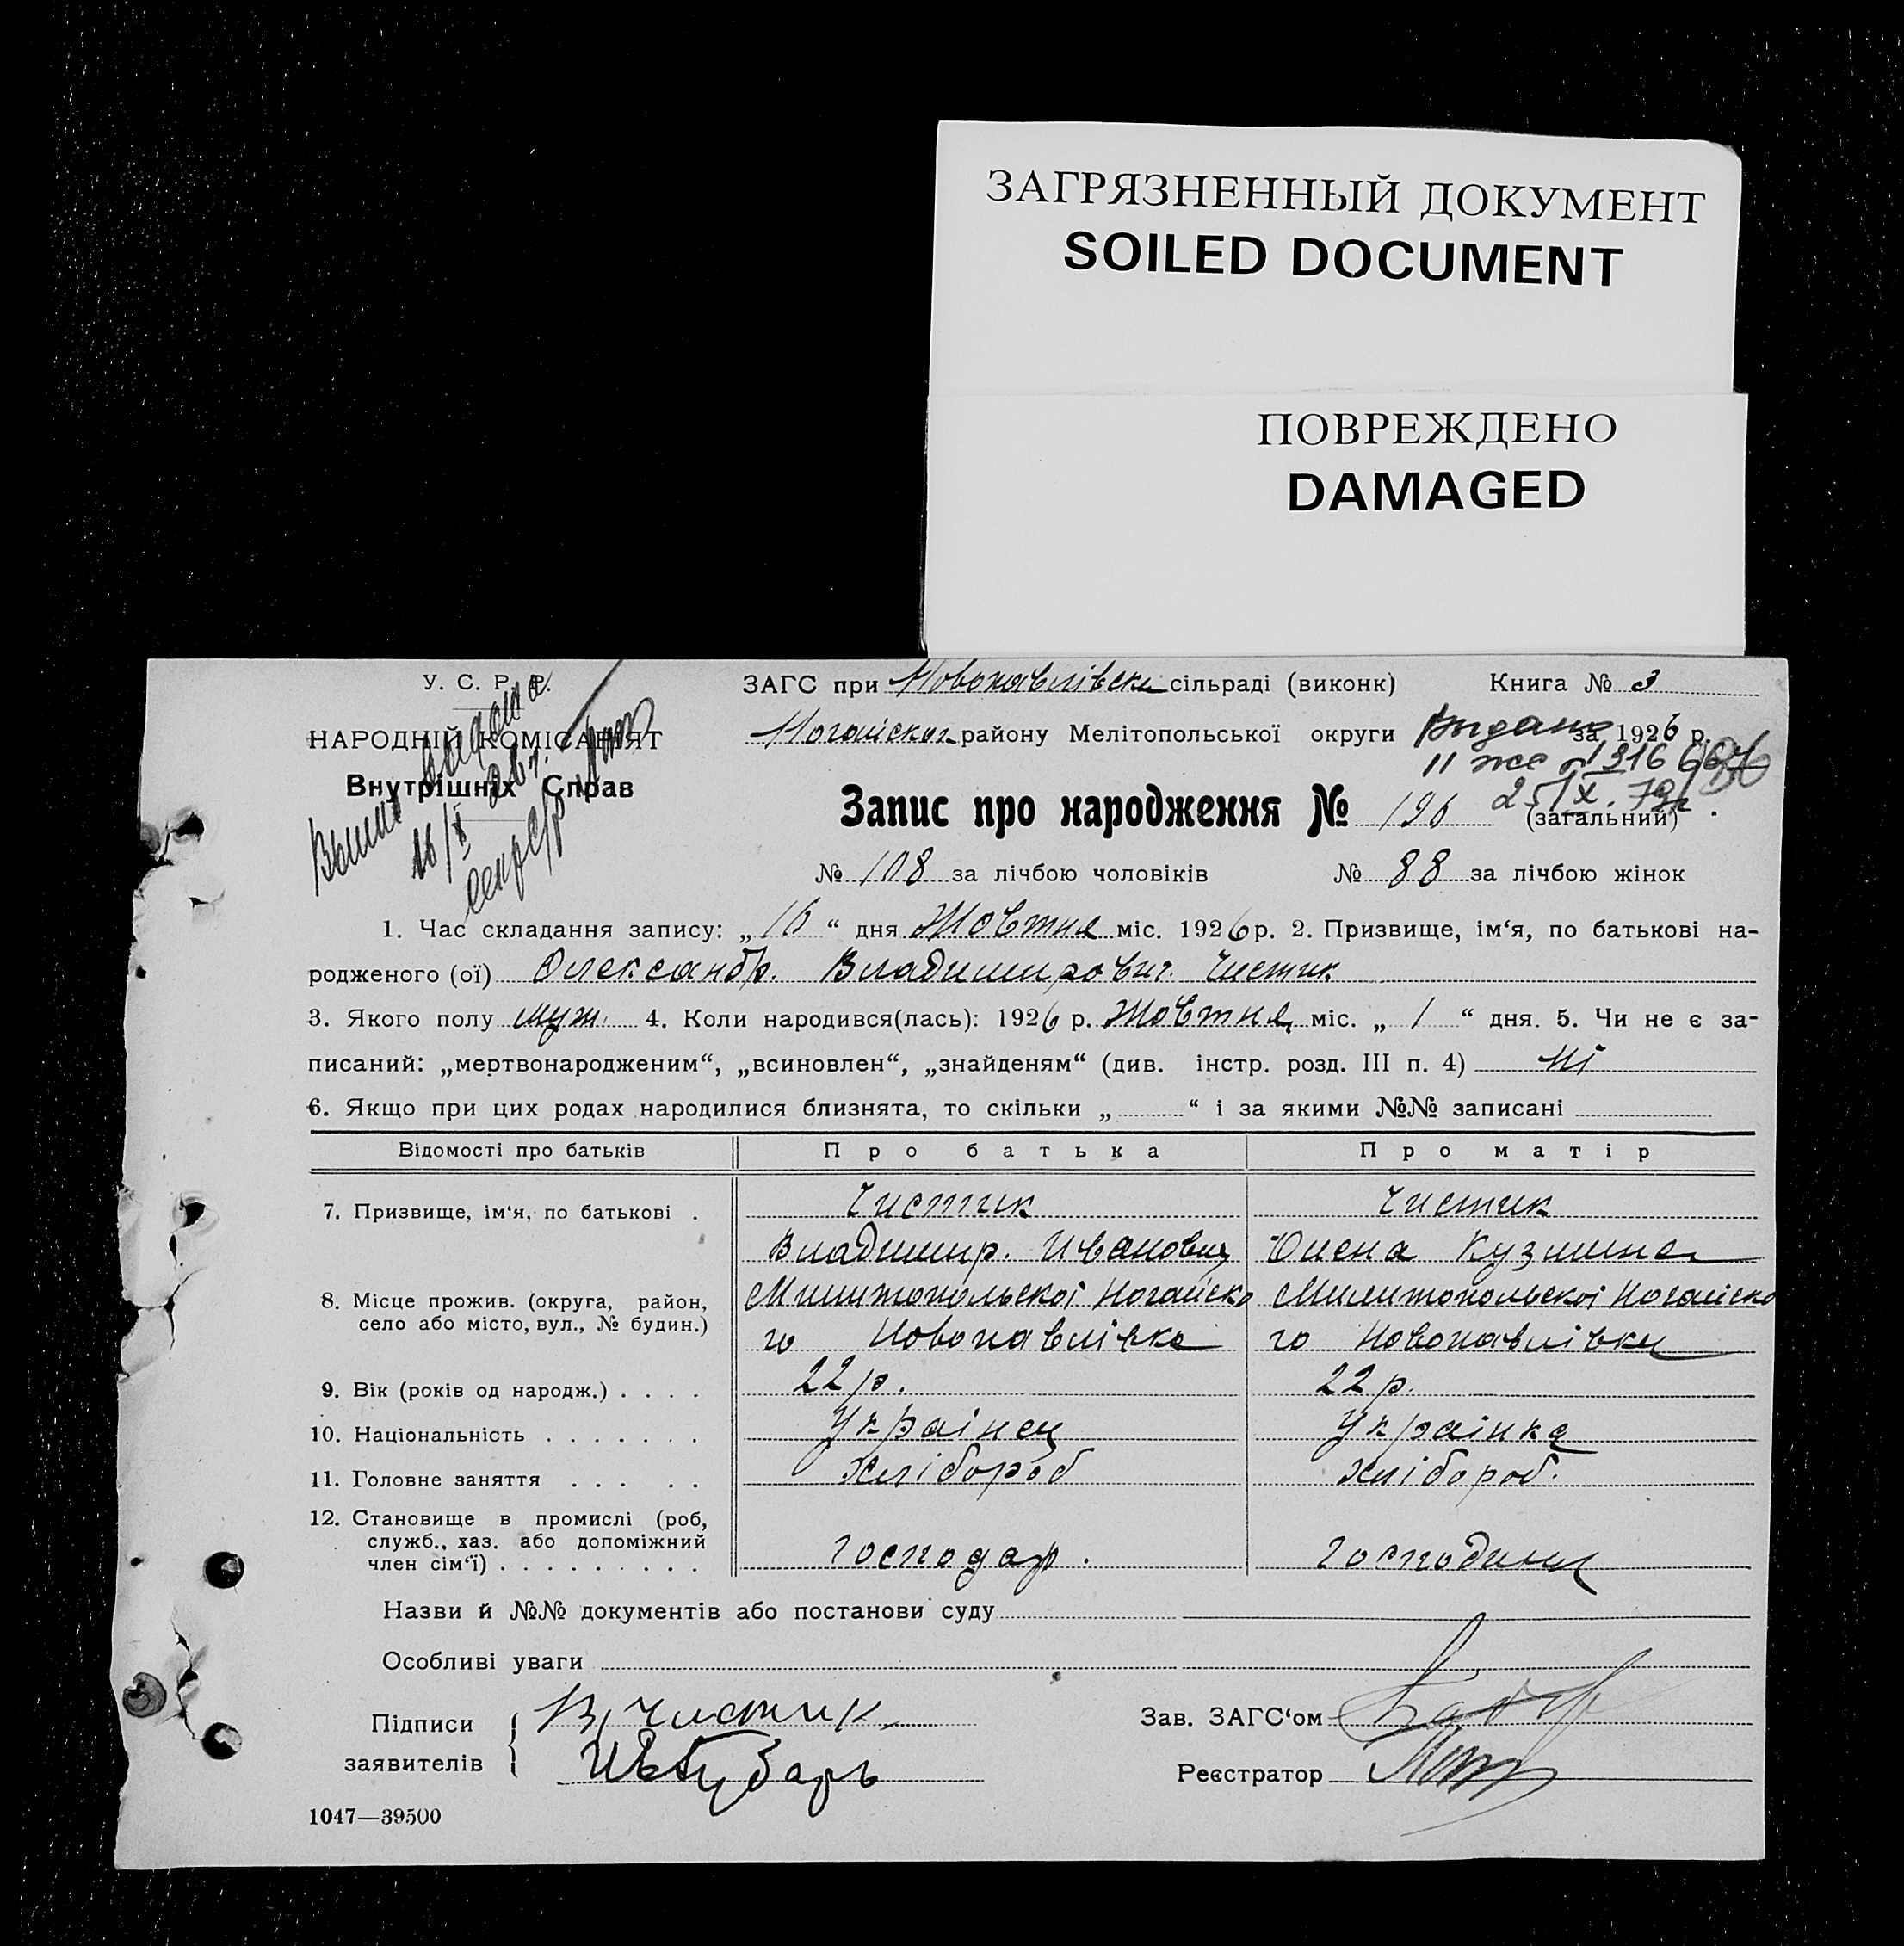 ЗАГРЯЗНЕННЫЙ ДОКУМЕНТ
SOILED DOCUMENT
ПОВРЕЖДЕНО
DAMAGED
У. С. Р. Р.
НАРОДНІЙ КОМІСАРІЯТ
Внутрішніх Справ
ЗАГС при Новопавлівськ сільраді (виконк) Книга № 3
Ногайског району Мелітопольської округи за 1926 р.
Выдано
25/IX. 79г.
Запис про народження № 196 (загальний)
№ 108 за лічбою чоловіків № 88 за лічбою жінок
1. Час складання запису: „16“ дня Жовтня міс. 1926 р. 2. Призвище, ім‘я, по батькові на-
родженого (ої) Олександр. Владимирович. Чистик
3. Якого полу муж. 4. Коли народився(лась): 1926 р. Жовтня міс. „1“ дня. 5. Чи не є за-
писаний: „мертвонародженим“, „всиновлен“, „знайденям“ (див. інстр. розд. III п. 4) ні
6. Якщо при цих родах народилися близнята, то скільки „ “ і за якими №№ записані
Відомості про батьків Про батька Про матір
7. Призвище, ім‘я, по батькові . Чистик Чистик
Владимир. Иванович Олена Кузмина
8. Місце прожив. (округа, район, Милитопольскої Ногайско Милитопольскої Ногайско
село або місто, вул., № будин.) го Новопавлівка го Новопавлівки
9. Вік (років од народж.) . . . . 22 р. 22 р.
10. Національність . . . . . . . Українец Українка
11. Головне заняття . . . . . Хлібороб хлібороб.
12. Становище в промислі (роб,
служб., хаз. або допоміжний
член сім‘ї) . . . . . . . . . господар. господиня
Назви й №№ документів або постанови суду
Особливі уваги
Підписи В Чистик Зав. ЗАГС‘ом
заявителів Реєстратор
1047—39500